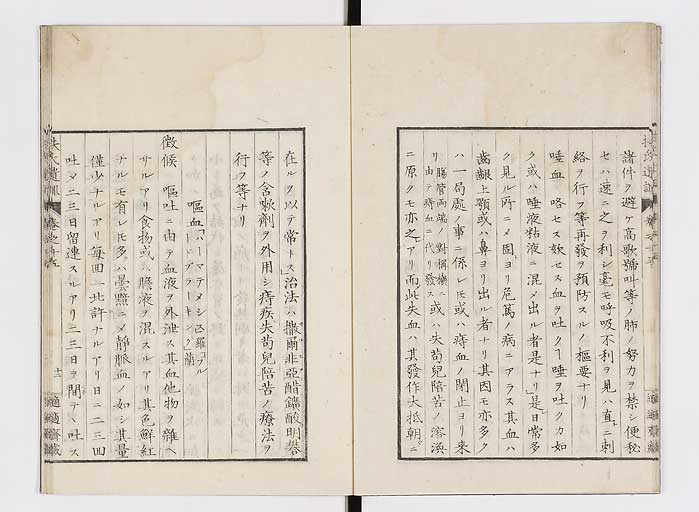 諸件ヲ避ケ高歌號叫等ノ肺ノ努力ヲ禁シ便秘
セハ速ニ之ヲ利シ毫モ呼吸不利ヲ見ハ直ニ刺
絡ヲ行フ等再發ヲ預防スルノ樞要ナリ
唾血 咯セス欬セス血ヲ吐クヿ唾ヲ吐クカ如
ク或ハ唾液粘液ニ混メ出ル者是ナリ是日常多
ク見ル所ニメ固ヨリ危篤ノ病ニアラス其血ハ
齒齦上顎或ハ鼻ヨリ出ル者ナリ其因モ亦多ク
ハ一局處ノ事ニ係レ𪜈或ハ痔血ノ閉止ヨリ来
リ
由テ時血ニ代リ發ス
或ハ失苟兒陪苦ノ溶渙
ニ原クモ亦之アリ而此失血ハ其發作大抵朝ニ
在ルヲ以テ常トス治法ハ撒爾非亞醋鑞酸明礬
等ノ含嗽劑ヲ外用シ痔疾失苟兒陪苦ノ療法ヲ
行フ等ナリ
嘔血
徴候 嘔吐ニ由テ血液ヲ外泄ス其血他物ヲ雜ヘ
サルアリ食物或ハ膽液ヲ混スルアリ其色鮮紅
ナルモ有レ𪜈多クハ曇黯ニメ靜脈血ノ如シ其量
僅少ナルアリ每回二比許ナルアリ日ニ二三回
吐メ二三日留連スルアリ二三日ヲ間テヽ吐ス
扶氏遺訓
卷之十五
適適齋藏